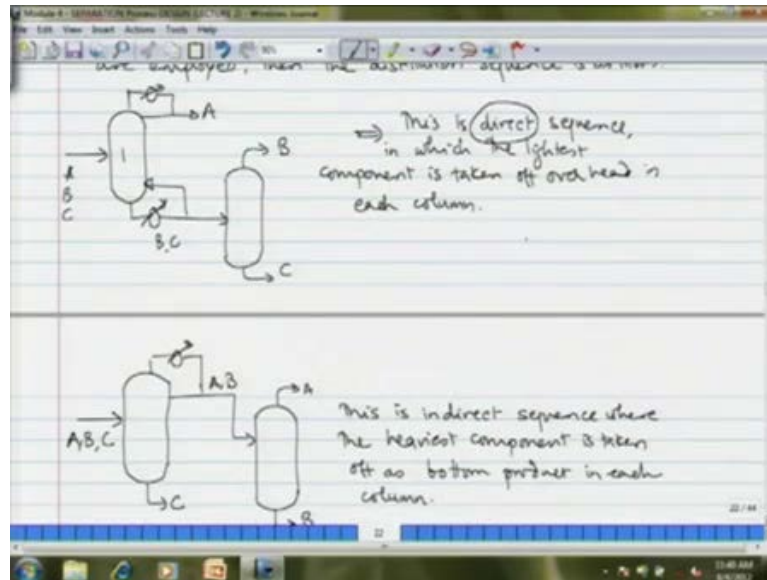 Module 4 - SEPARATION Process DESIGN (LECTURE 2) - Windows Journal
File Edit View Insert Actions Tools Help
are employed, then the distillation sequence is
A
1
A
B
C
B
B,C
C
⇒ This is direct sequence,
in which the lightest
component is taken off overhead in
each column.
A,B
A
A,B,C
C
B
This is indirect sequence where
the heaviest component is taken
off as bottom product in each
column.
22 / 44
22
11:40 AM